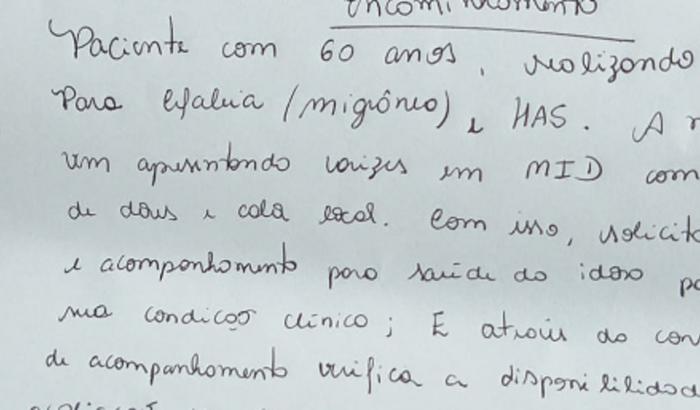 Encaminhamento
Paciente com 60 anos, realizando
para cefaleia (migrâneo) e HAS. A
vem apresentando varizes em MID com
de dores e calor local. Com isso, solicito
e acompanhamento para saúde do idoso
sua condição clínica; E através do
de acompanhamento verifica a disponibilidad